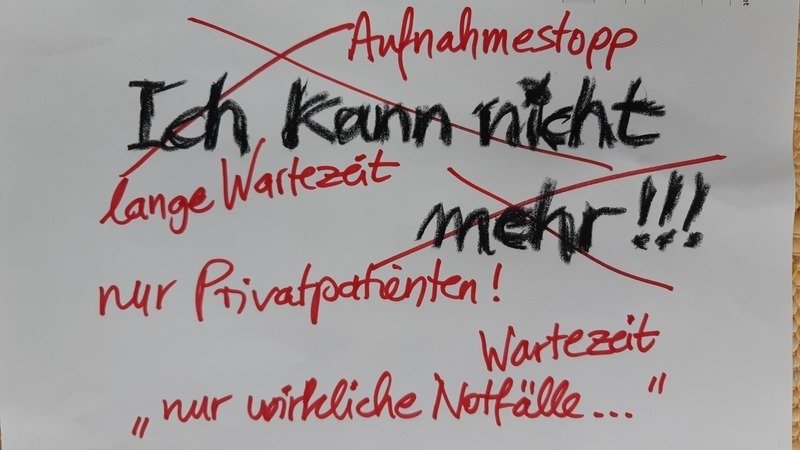 Aufnahmestopp
Ich kann nicht
lange Wartezeit
mehr!!!
nur Privatpatienten!
Wartezeit
„nur wirkliche Notfälle..."